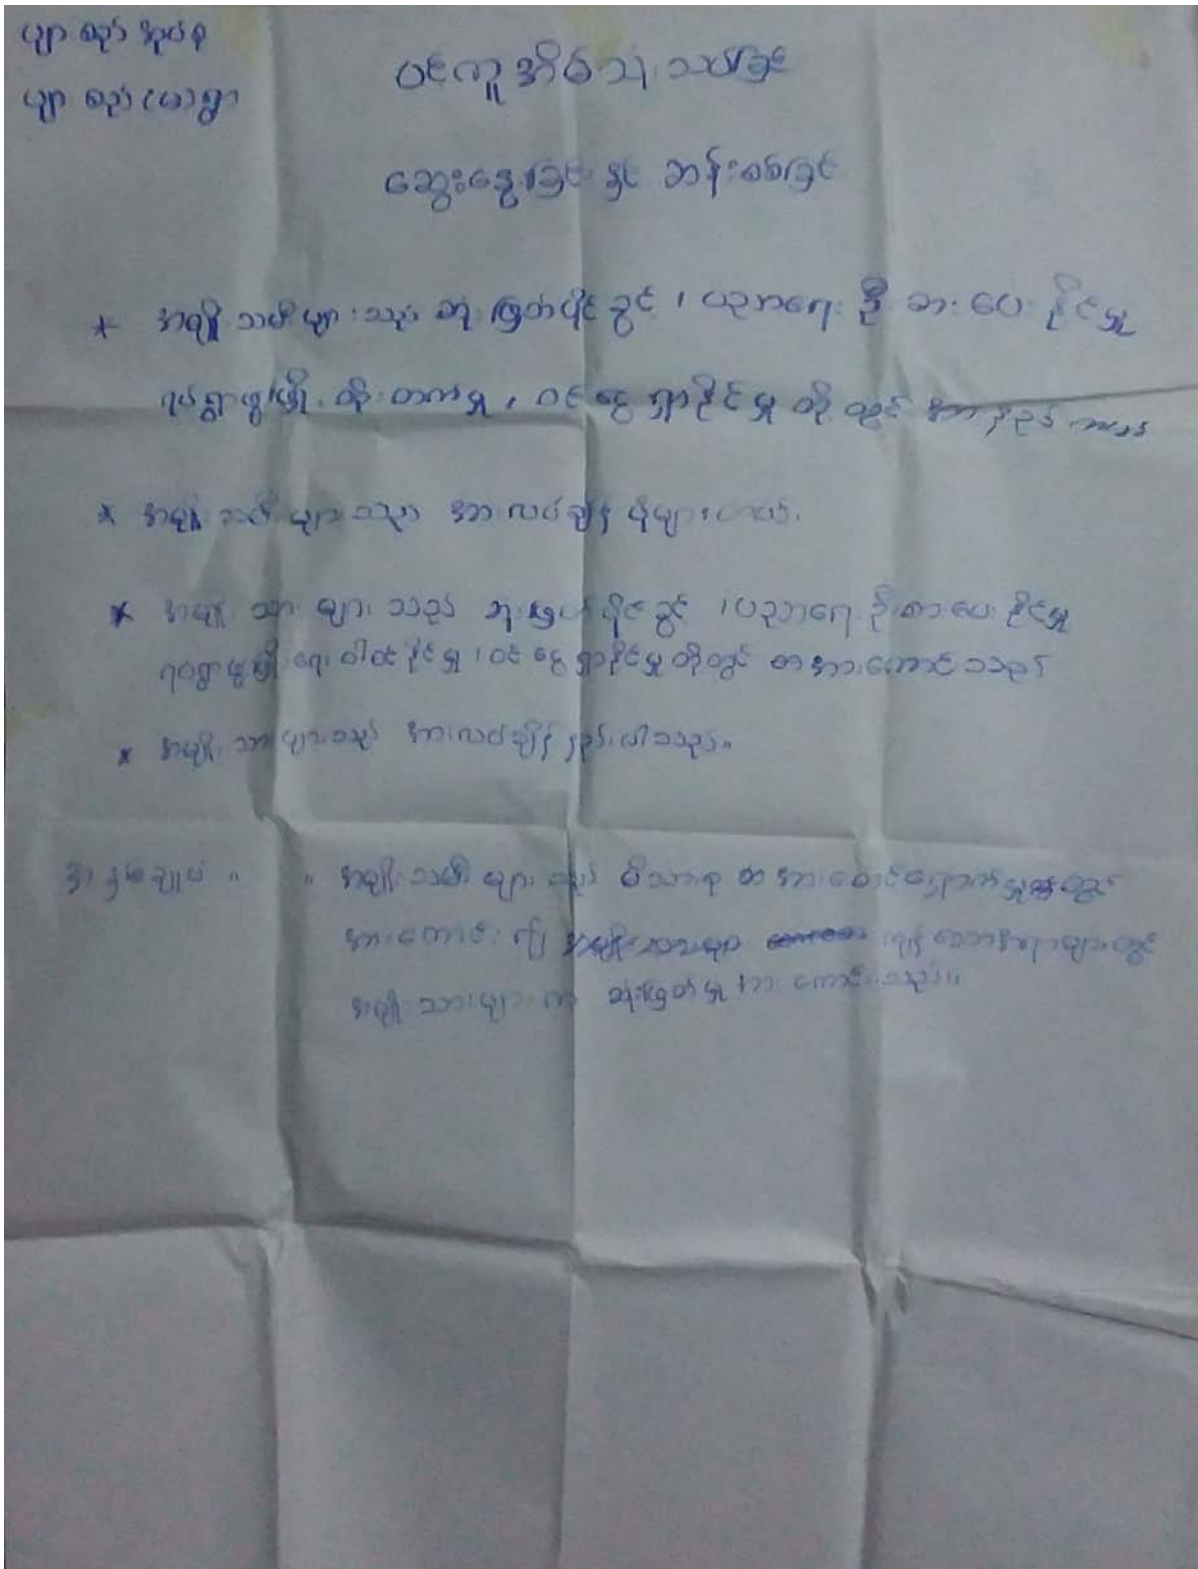 ပျား စည် အုပ်စု
ပင်ကူအိမ်သုံးသပ်ခြင်း
ပျား စည် (မ) ရွာ
ဆွေးနွေးခြင်း နှင့် ဆန်းစစ်ခြင်း
* အမျိုးသမီးများ သည် ဆုံးဖြတ်ပိုင်ခွင့် ၊ ပညာရေး ဦးစားပေး နိုင်မှု
ရပ်ရွာဖွံ့ဖြိုး တိုးတက်မှု ၊ ဝင်ငွေ ရှာနိုင်မှု တို့ တွင် အားနည်း
* အမျိုးသမီး များ သည် အားလပ်ချိန် ပိုများ
* အမျိုးသား များ သည် ဆုံးဖြတ်ပိုင်ခွင့် ၊ ပညာရေး ဦးစားပေး နိုင်မှု
ရပ်ရွာဖွံ့ဖြိုးရေး ပါဝင်နိုင်မှု ၊ ဝင်ငွေ ရှာနိုင်မှု တို့တွင် အားကောင်းသည်
* အမျိုးသားများသည် အားလပ်ချိန် နည်းပါးသည်။
အနှစ်ချုပ် ။ ။ အမျိုးသမီး များ သည် မိသားစု စောင့်ရှောက်မှု တွင်
အားကောင်း ၍ ကျန်သော အရာများတွင်
အမျိုးသားများ က ဆုံးဖြတ်မှု အားကောင်းသည်။